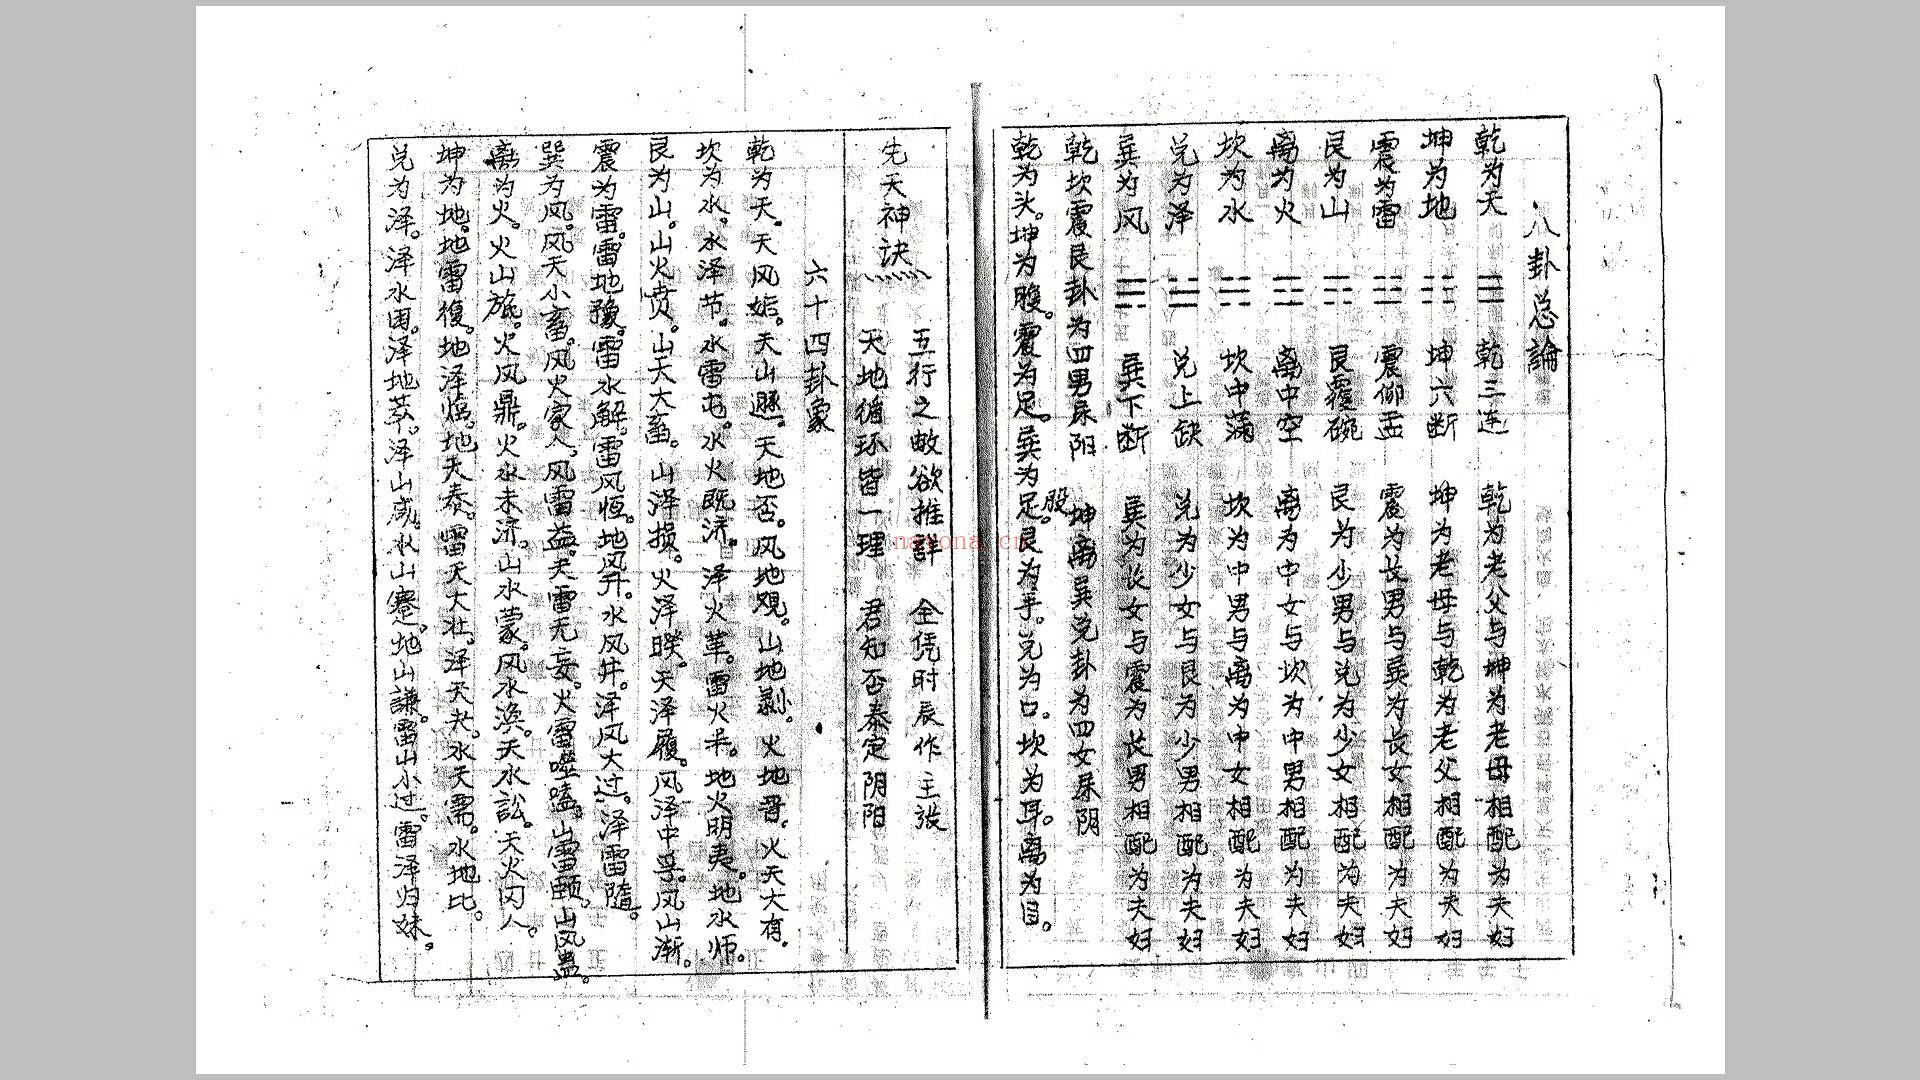 八卦总論
乾为天 ☰ 乾三连 乾为老父与坤为老母相配为夫妇
坤为地 ☷ 坤六断 坤为老母与乾为老父相配为夫妇
震为雷 ☳ 震仰盂 震为长男与巽为长女相配为夫妇
艮为山 ☶ 艮覆碗 艮为少男与兑为少女相配为夫妇
离为火 ☲ 离中空 离为中女与坎为中男相配为夫妇
坎为水 ☵ 坎中满 坎为中男与离为中女相配为夫妇
兑为泽 ☱ 兑上缺 兑为少女与艮为少男相配为夫妇
巽为风 ☴ 巽下断 巽为长女与震为长男相配为夫妇
乾坎震艮卦为四男属阳 坤离巽兑卦为四女属阴
乾为头。坤为腹。震为足。巽为足。股艮为手。兑为口。坎为耳。离为目。
先天神诀
五行之数欲推详 全凭时辰作主张
天地循环皆一理 君知否泰定阴阳
六十四卦象
乾为天。天风姤。天山遯。天地否。风地观。山地剥。火地晋。火天大有。
坎为水。水泽节。水雷屯。水火既济。泽火革。雷火丰。地火明夷。地水师。
艮为山。山火贲。山天大畜。山泽损。火泽睽。天泽履。风泽中孚。风山渐。
震为雷。雷地豫。雷水解。雷风恒。地风升。水风井。泽风大过。泽雷随。
巽为风。风天小畜。风火家人。风雷益。天雷无妄。火雷噬嗑。山雷颐。山风蛊。
离为火。火山旅。火风鼎。火水未济。山水蒙。风水涣。天水訟。天火同人。
坤为地。地雷復。地泽临。地天泰。雷天大壮。泽天夬。水天需。水地比。
兑为泽。泽水困。泽地萃。泽山咸。水山蹇。地山謙。雷山小过。雷泽归妹。
nayona.cn